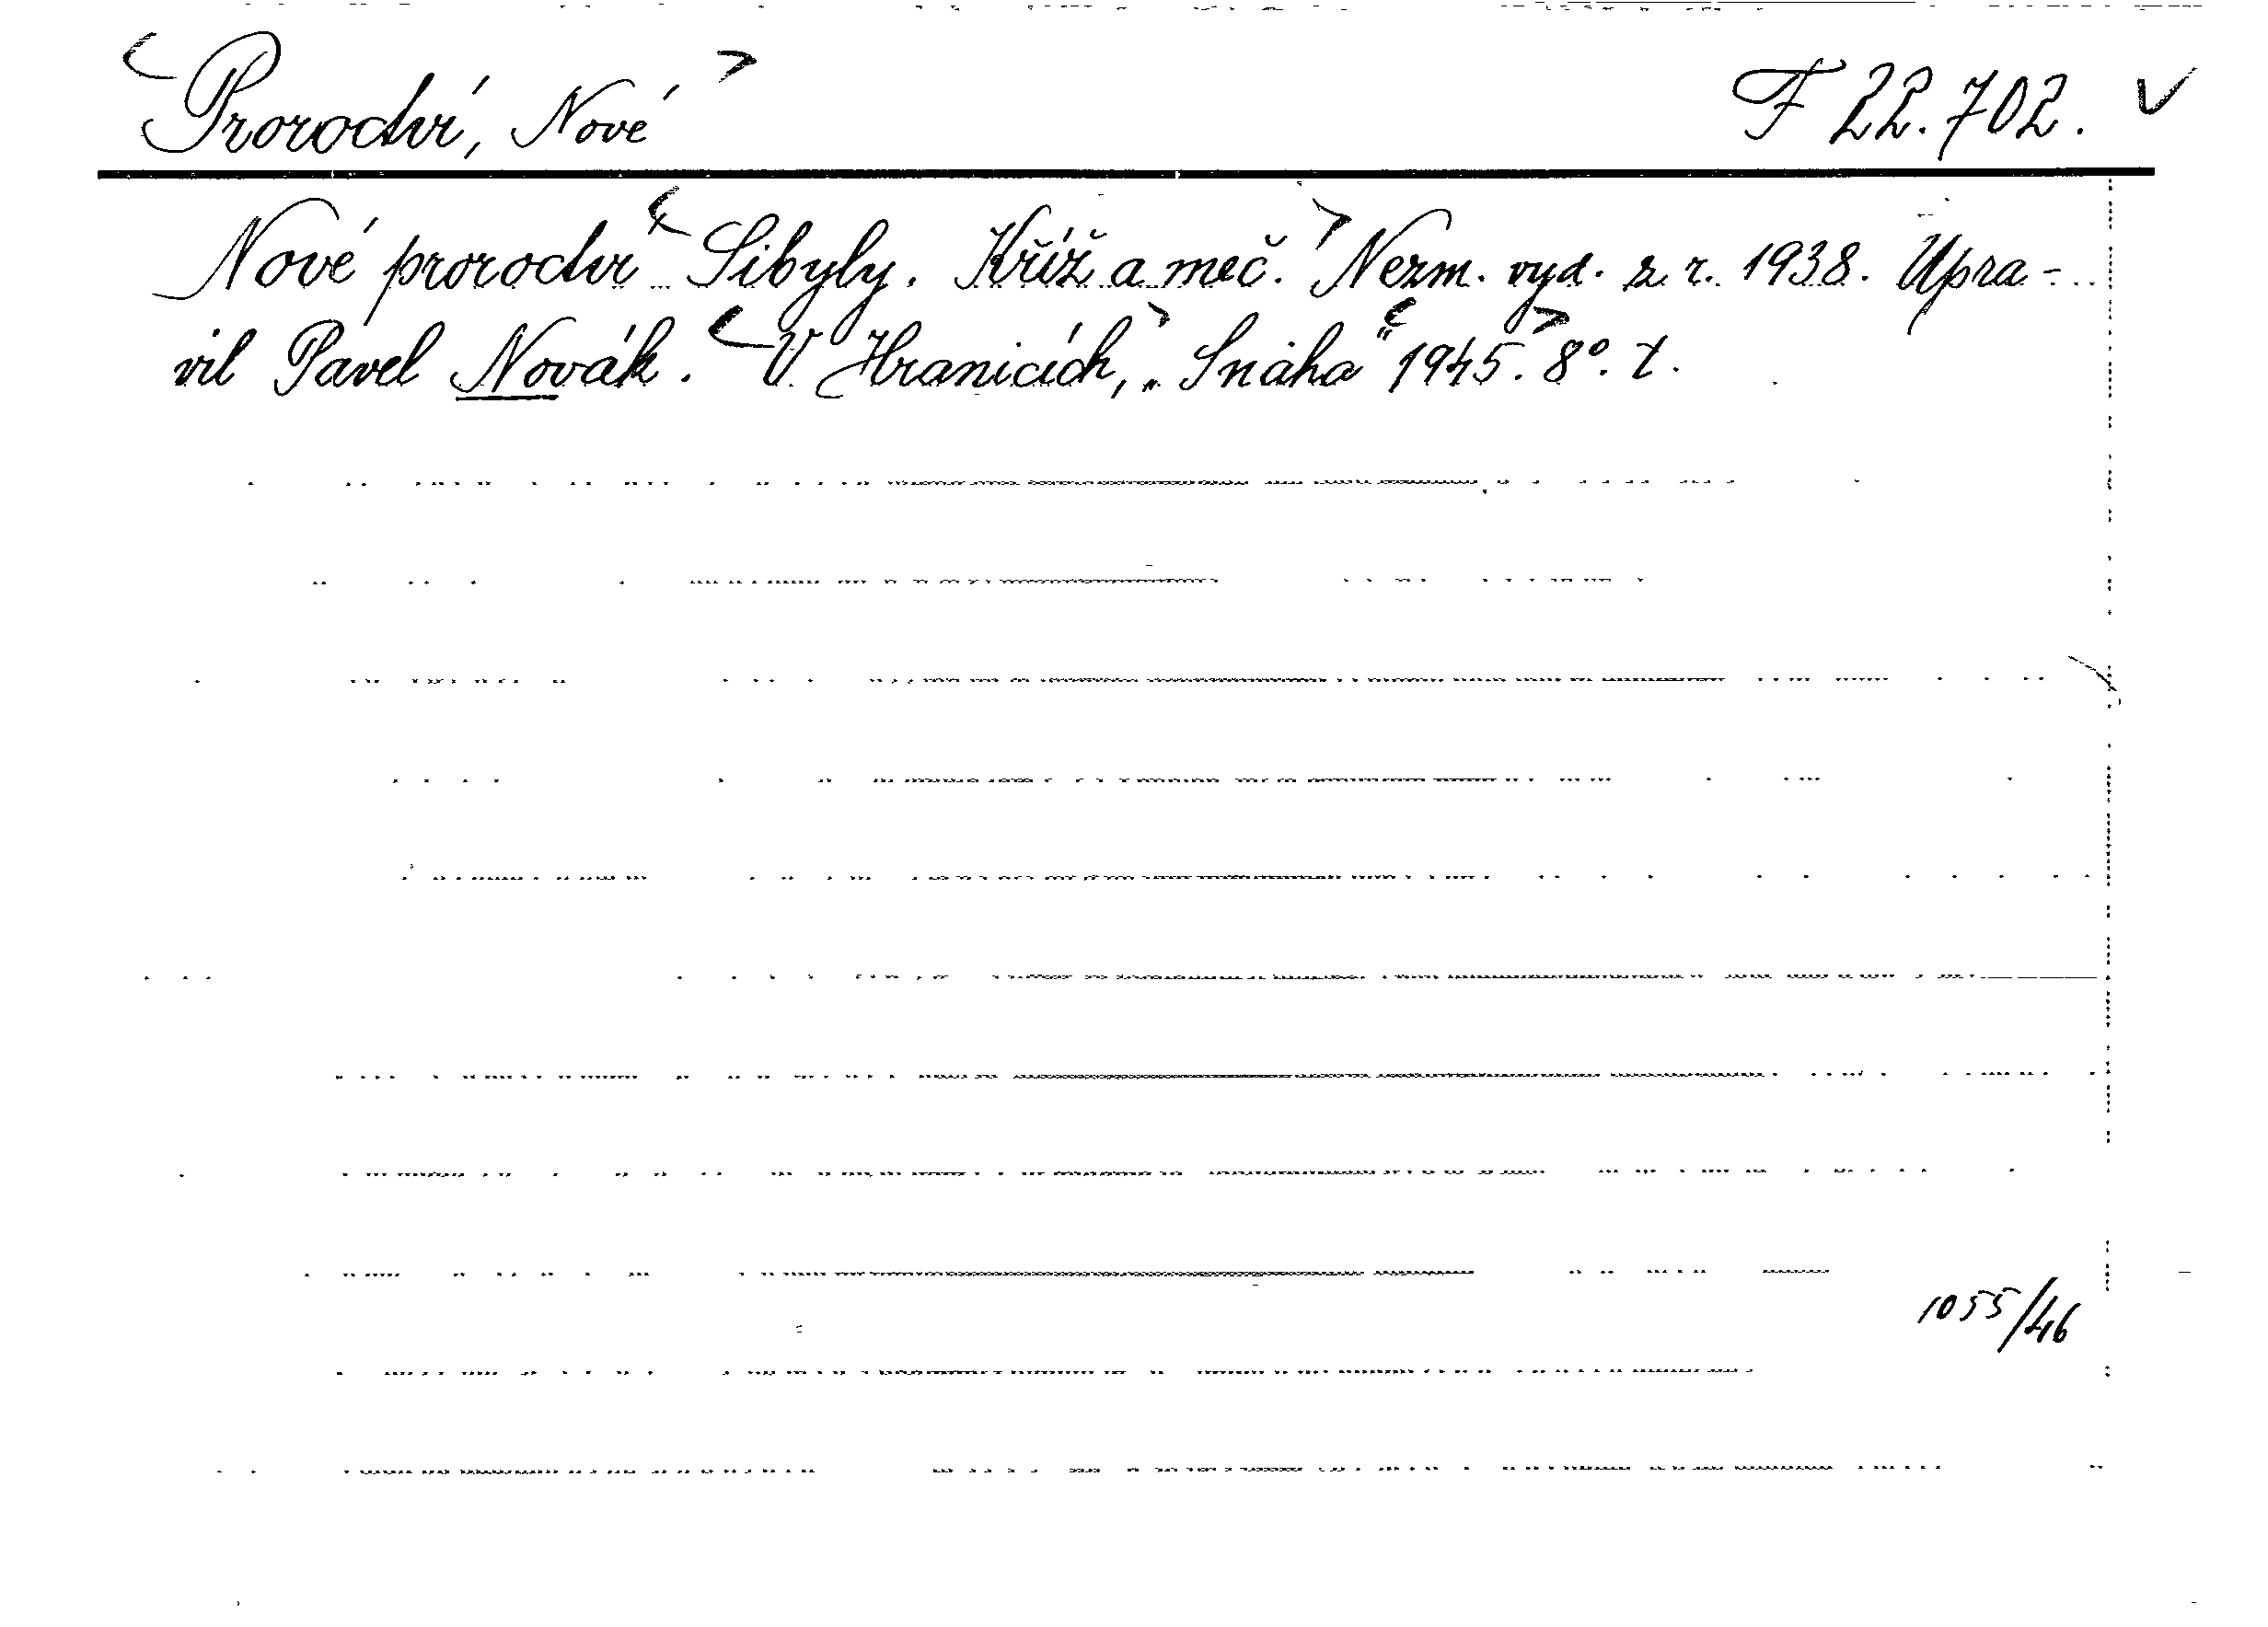 Proroctví, Nové F 22.702. ✓
Nové proroctví Sibyly. Kříž a meč. Nezm. vyd. z r. 1938. Upra-
vil Pavel Novák. V Hranicích, „Snaha" 1945. 8°. t.
1055/46